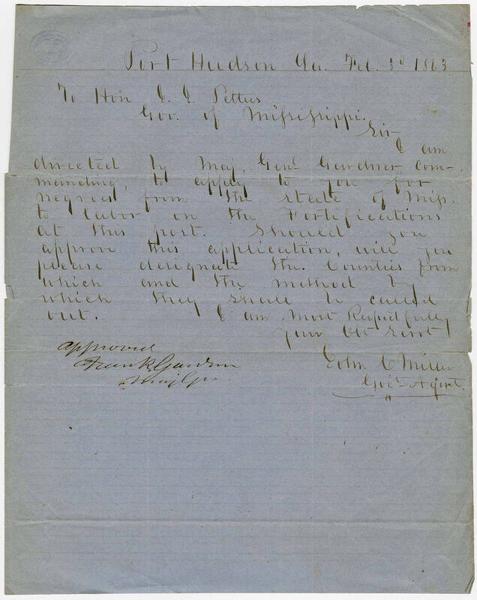 Port Hudson La. Feb. 3d 1863
To Hon J. J. Pettus
Gov. of Mississippi.
Sir
I am
directed by Maj. Genl Gardner Com-
manding, to apply to you for
negroes from the state of Miss.
to labor on the Fortifications
at this post. Should you
approve this application, will you
please designate the Counties from
which and the method by
which they should be called
out. I am, Most Respectfully
Your Obt Servt
Approved
Frank Gardner
Maj Gen
C Miller
Gov. Agent.